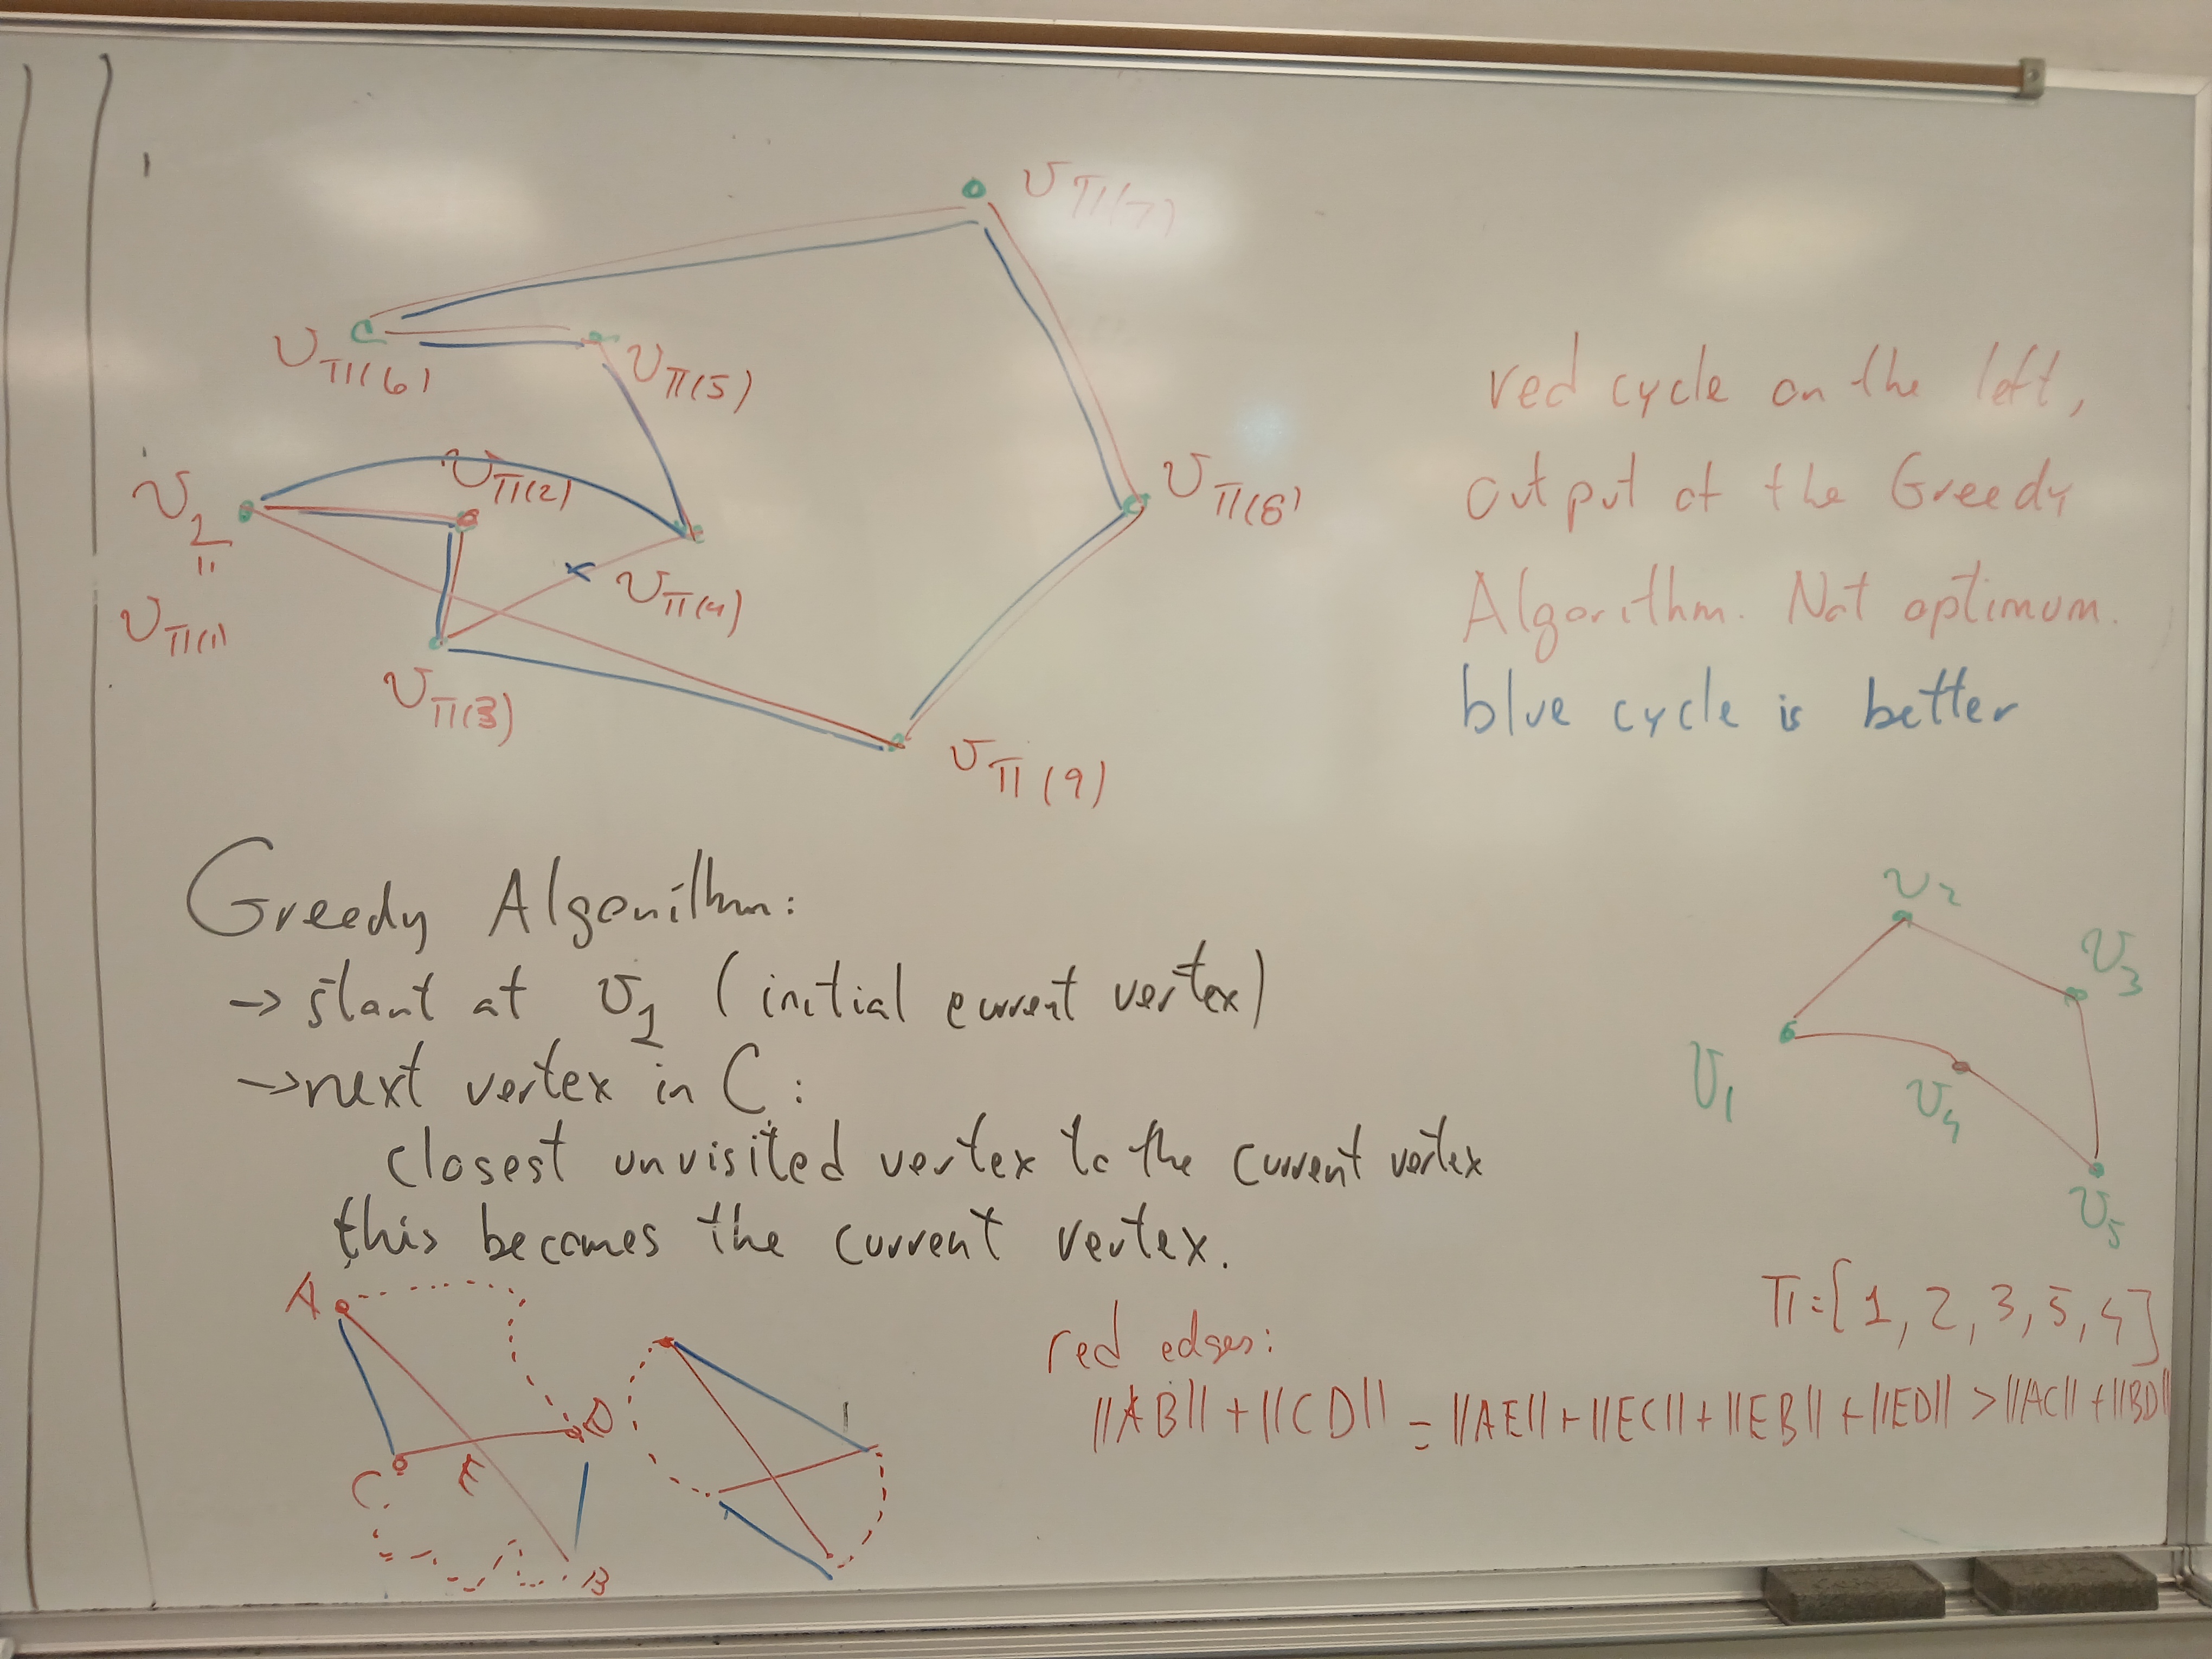 υ_π(7)
υ_π(6)
υ_π(5)
υ_1
=
υ_π(1)
υ_π(2)
υ_π(4)
υ_π(3)
υ_π(8)
υ_π(9)
red cycle on the left,
output of the Greedy
Algorithm. Not optimum.
blue cycle is better
Greedy Algorithm:
→ start at υ_1 (initial current vertex)
→ next vertex in C:
closest unvisited vertex to the current vertex
this becomes the current vertex.
υ_2
υ_3
υ_1
υ_4
υ_5
π=[1, 2, 3, 5, 4]
A
D
C
E
B
red edges:
||AB|| + ||CD|| = ||AE|| + ||EC|| + ||EB|| + ||ED|| > ||AC|| + ||BD||